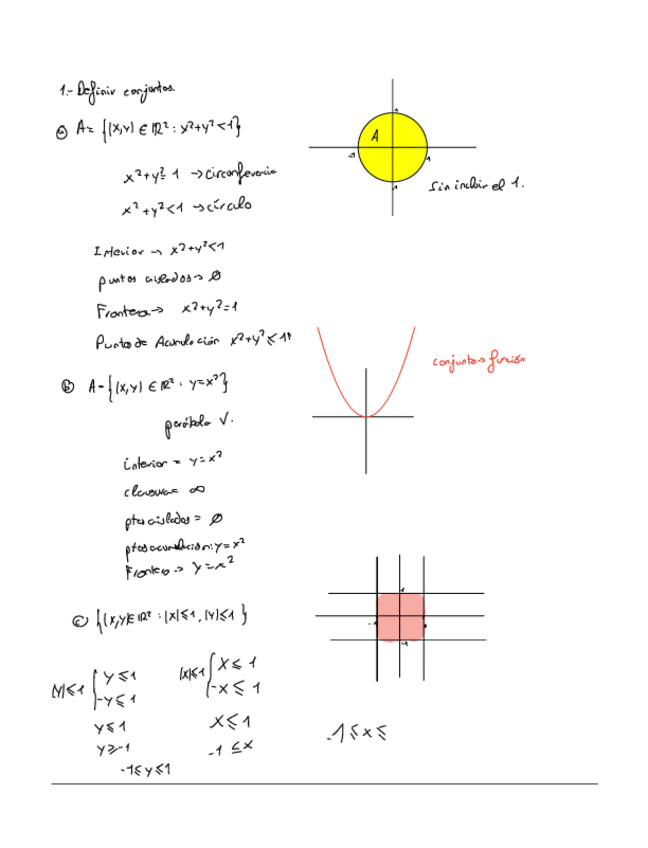 1.- Definir conjuntos.
a) A = {(x,y) ∈ ℝ² : x²+y² < 1}
A
1
-1
1
-1
Sin incluir el 1.
x²+y² = 1 → circonferencia
x²+y² < 1 → círculo
Interior → x²+y² < 1
puntos aislados → ∅
Frontera → x²+y² = 1
Puntos de Acumulación x²+y² ≤ 1
conjunto → función
b) A = {(x,y) ∈ ℝ² : y = x²}
parábola V.
interior = y = x²
clausura = ∞
ptos aislados = ∅
ptos acumulación: y = x²
Frontera → y = x²
c) {(x,y) ∈ ℝ² : |x| ≤ 1, |y| ≤ 1}
1
-1
-1
|y| ≤ 1 { y ≤ 1
-y ≤ 1
|x| ≤ 1 { x ≤ 1
-x ≤ 1
y ≤ 1
y ≥ -1
-1 ≤ y ≤ 1
x ≤ 1
-1 ≤ x
-1 ≤ x ≤